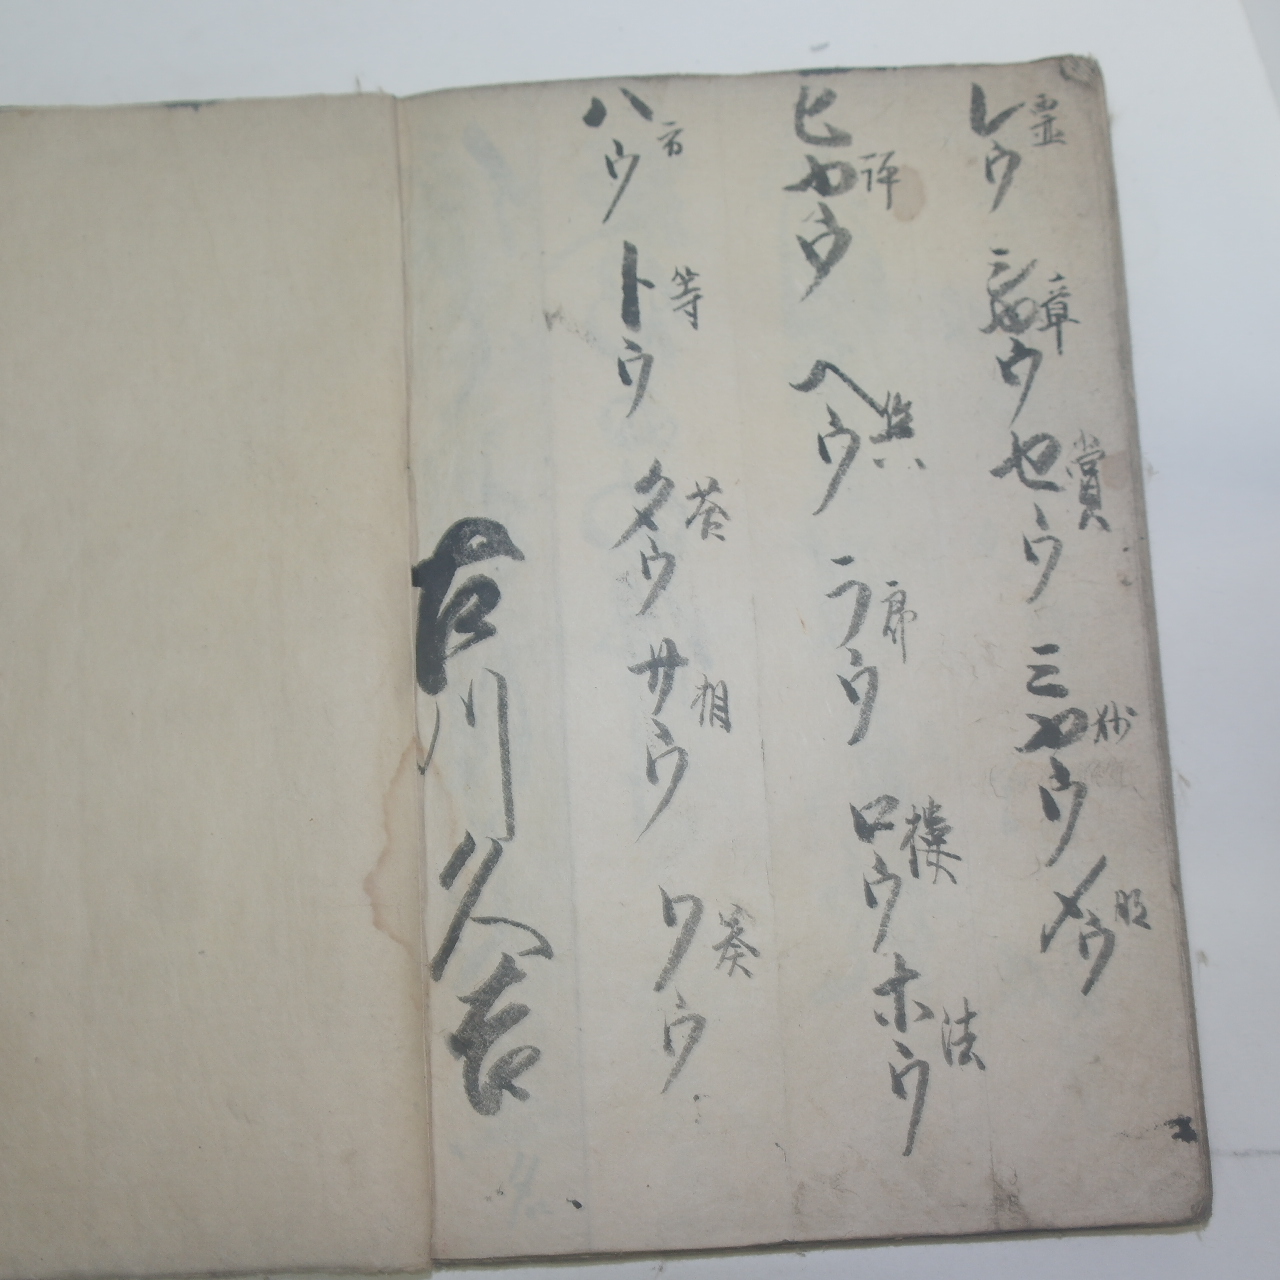 レウ霊 シヤウ章 セウ賞 ミヤウ妙 メウ明
ヒヤウ評 ヘウ ラウ郎 ロウ樓 ホウ法
ハウ方 トウ等 タウ答 サウ相 ワウ
古川久吉